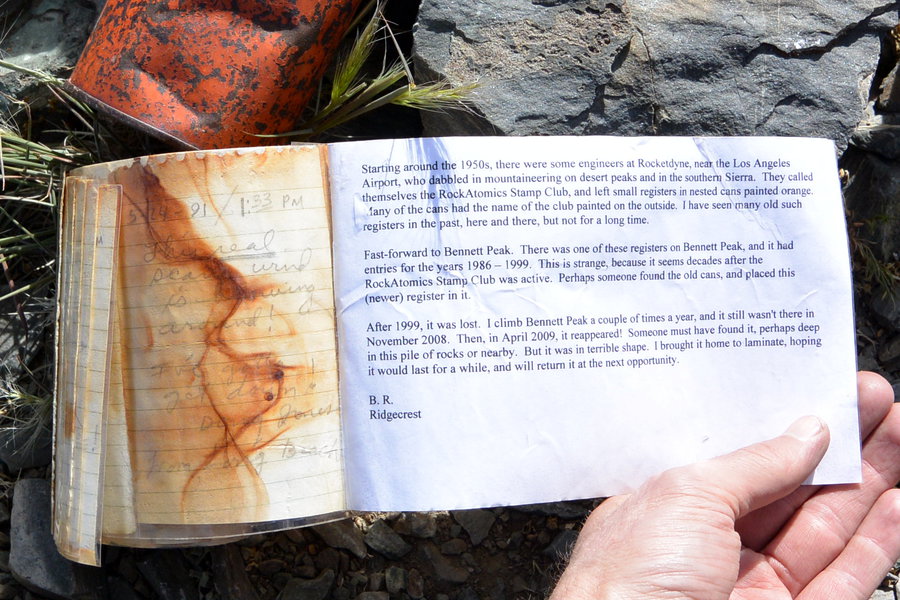 5-24-91 / 1:33 PM
real
wind
is
around!
I've
get down!
Starting around the 1950s, there were some engineers at Rocketdyne, near the Los Angeles
Airport, who dabbled in mountaineering on desert peaks and in the southern Sierra. They called
themselves the RockAtomics Stamp Club, and left small registers in nested cans painted orange.
Many of the cans had the name of the club painted on the outside. I have seen many old such
registers in the past, here and there, but not for a long time.
Fast-forward to Bennett Peak. There was one of these registers on Bennett Peak, and it had
entries for the years 1986 – 1999. This is strange, because it seems decades after the
RockAtomics Stamp Club was active. Perhaps someone found the old cans, and placed this
(newer) register in it.
After 1999, it was lost. I climb Bennett Peak a couple of times a year, and it still wasn't there in
November 2008. Then, in April 2009, it reappeared! Someone must have found it, perhaps deep
in this pile of rocks or nearby. But it was in terrible shape. I brought it home to laminate, hoping
it would last for a while, and will return it at the next opportunity.
B. R.
Ridgecrest